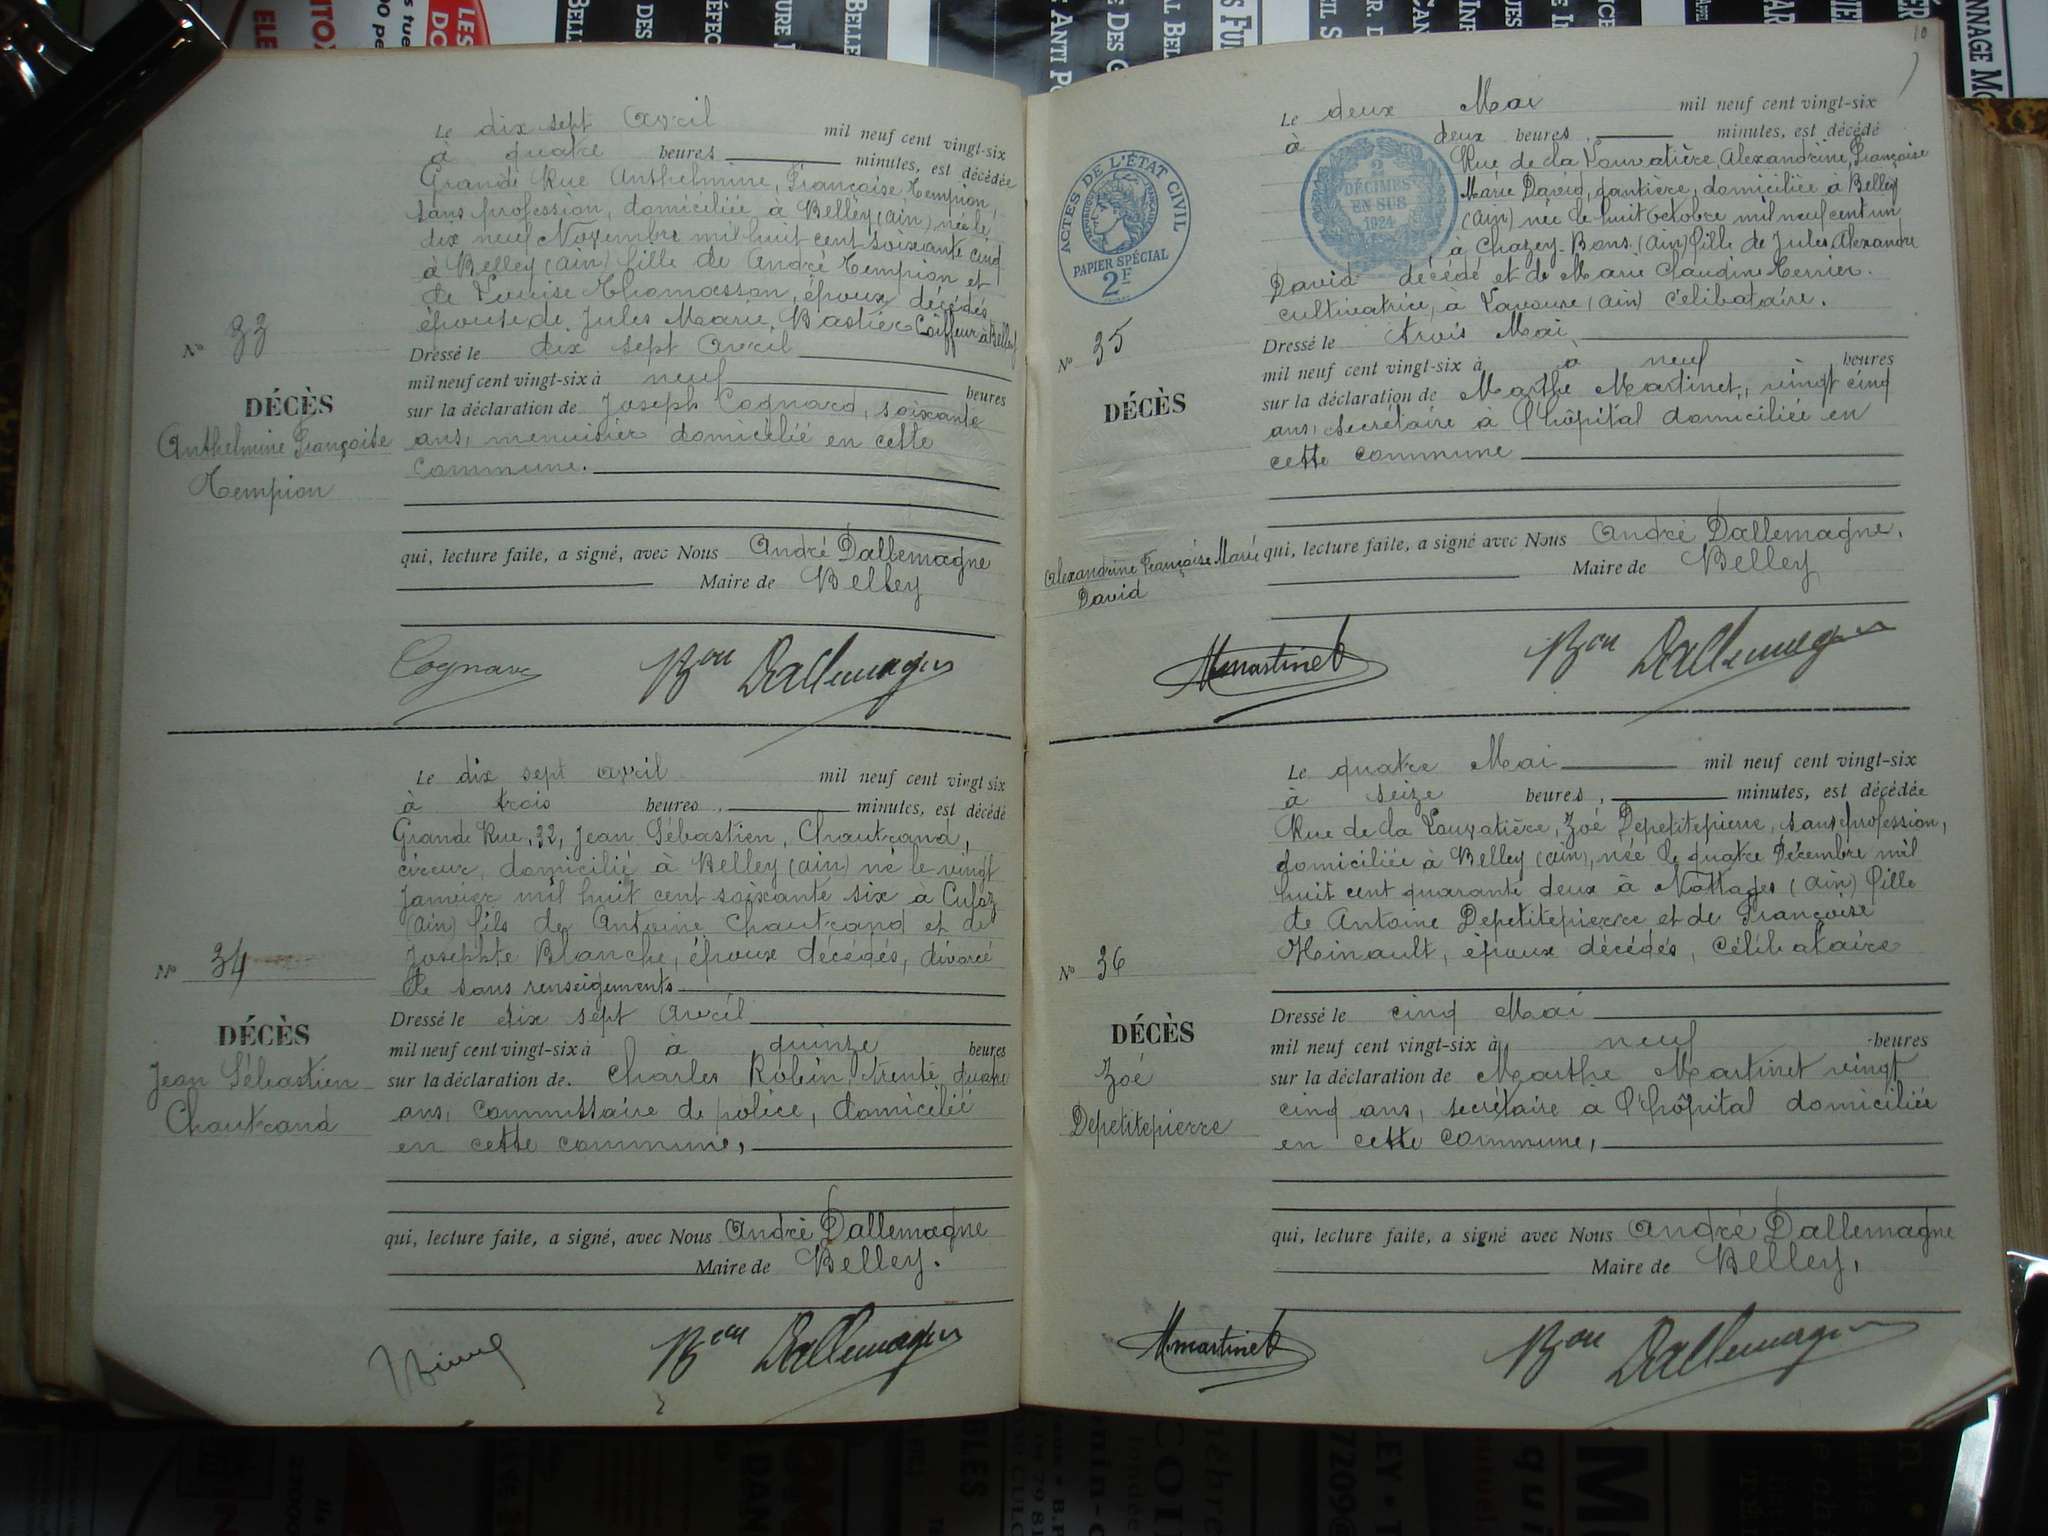 Le dix sept Avril mil neuf cent vingt-six
à quatre heures minutes, est décédée
Grande Rue Anthelmine, Françoise Tempion,
sans profession, domiciliée à Belley (Ain) née le
dix neuf Novembre mil huit cent soixante cinq
à Belley (Ain) fille de André Tempion et
de Louise Thomasson, époux décédés
épouse de Jules Marie Bastien Coiffeur à Belley
No 33
Dressé le dix sept Avril
mil neuf cent vingt-six à neuf heures
DÉCÈS
sur la déclaration de Joseph Cognard, soixante
Anthelmine Françoise
ans, menuisier domicilié en cette
Tempion
commune.
qui, lecture faite, a signé, avec Nous André Dallemagne
Maire de Belley
Cognard Bon Dallemagne
Le dix sept avril mil neuf cent vingt six
à trois heures, minutes, est décédé
Grande Rue, 32, Jean Sébastien, Chautrand,
cireur, domicilié à Belley (Ain) né le vingt
Janvier mil huit cent soixante six à Culoz
(Ain) fils de Antoine Chautrand et de
Josephte Blanche, époux décédés, divorcé
No 34
de sans renseignements
Dressé le dix sept Avril
DÉCÈS
mil neuf cent vingt-six à à quinze heures
Jean Sébastien
sur la déclaration de. Charles Robin, trente quatre
Chautrand
ans, commissaire de police, domicilié
en cette commune,
qui, lecture faite, a signé, avec Nous André Dallemagne
Maire de Belley.
Bon Dallemagne
10
Le deux Mai mil neuf cent vingt-six
à deux heures, minutes, est décédé
Rue de la Louvatière, Alexandrine, Françoise
Marie David, gantière, domiciliée à Belley
(Ain) née le huit octobre mil neuf cent un
à Chazey-Bons (Ain) fille de Jules Alexandre
David décédé et de Marie Claudine Terrier.
cultivatrice, à Lavours (Ain) célibataire.
ACTES DE L'ÉTAT CIVIL
PAPIER SPÉCIAL
2F
2
DÉCIMES
EN SUS
1924
No 35
Dressé le trois Mai
mil neuf cent vingt-six à à neuf heures
DÉCÈS
sur la déclaration de Marthe Martinet, vingt cinq
ans, secrétaire à l'hôpital domiciliée en
cette commune
Alexandrine Françoise Marie
David
qui, lecture faite, a signé avec Nous André Dallemagne.
Maire de Belley
M martinet Bon Dallemagne
Le quatre Mai mil neuf cent vingt-six
à seize heures, minutes, est décédée
Rue de la Louvatière, Zoé Depetitepierre, sans profession,
domiciliée à Belley (Ain), née le quatre Décembre mil
huit cent quarante deux à Nattages (Ain) fille
de Antoine Depetitepierre et de Françoise
Hinault, époux décédés, célibataire
No 36
Dressé le cinq Mai
DÉCÈS
mil neuf cent vingt-six à neuf heures
Zoé
sur la déclaration de Marthe Martinet vingt
Depetitepierre
cinq ans, secrétaire à l'hôpital domiciliée
en cette commune,
qui, lecture faite, a signé avec Nous André Dallemagne
Maire de Belley,
M martinet Bon Dallemagne